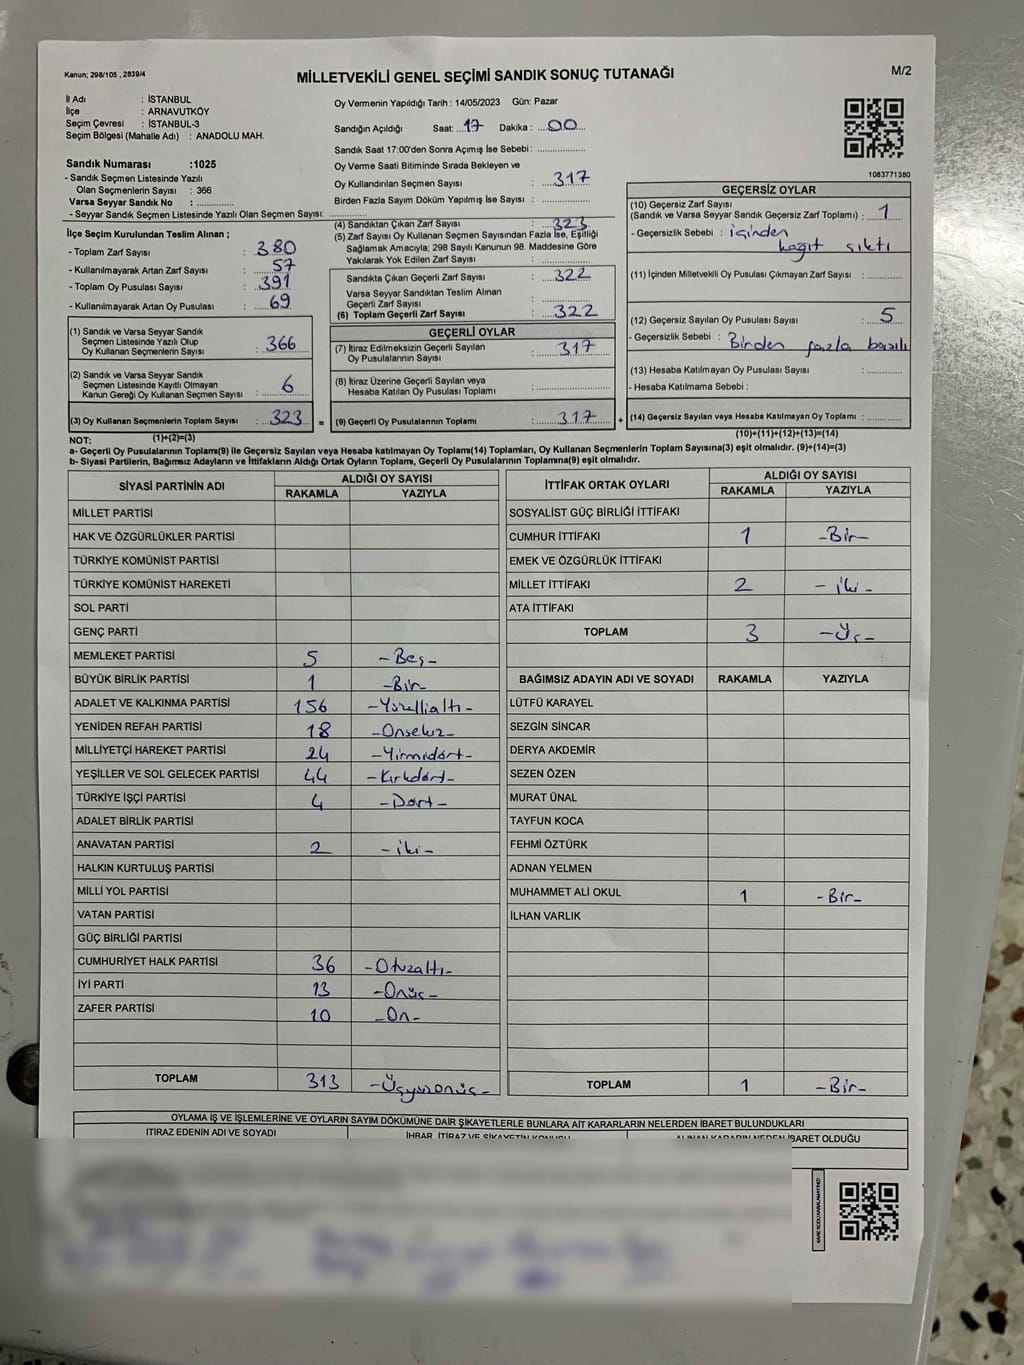 Kanun; 298/105 , 2839/4
MİLLETVEKİLİ GENEL SEÇİMİ SANDIK SONUÇ TUTANAĞI
M/2
İl Adı : İSTANBUL
İlçe : ARNAVUTKÖY
Seçim Çevresi : İSTANBUL-3
Seçim Bölgesi (Mahalle Adı) : ANADOLU MAH.
Sandık Numarası :1025
- Sandık Seçmen Listesinde Yazılı
Olan Seçmenlerin Sayısı : 366
Varsa Seyyar Sandık No : ..............
- Seyyar Sandık Seçmen Listesinde Yazılı Olan Seçmen Sayısı: ..............
İlçe Seçim Kurulundan Teslim Alınan ;
- Toplam Zarf Sayısı : 380
- Kullanılmayarak Artan Zarf Sayısı : 57
- Toplam Oy Pusulası Sayısı : 391
- Kullanılmayarak Artan Oy Pusulası : 69
(1) Sandık ve Varsa Seyyar Sandık
Seçmen Listesinde Yazılı Olup
Oy Kullanan Seçmenlerin Sayısı : 366
(2) Sandık ve Varsa Seyyar Sandık
Seçmen Listesinde Kayıtlı Olmayan
Kanun Gereği Oy Kullanan Seçmen Sayısı : 6
(3) Oy Kullanan Seçmenlerin Toplam Sayısı : 323 =
Oy Vermenin Yapıldığı Tarih : 14/05/2023 Gün: Pazar
Sandığın Açıldığı Saat: 17 Dakika : 00
Sandık Saat 17:00'den Sonra Açımış İse Sebebi: ..............
Oy Verme Saati Bitiminde Sırada Bekleyen ve
Oy Kullandırılan Seçmen Sayısı : 317
Birden Fazla Sayım Döküm Yapılmış İse Sayısı : ..............
(4) Sandıktan Çıkan Zarf Sayısı : 323
(5) Zarf Sayısı Oy Kullanan Seçmen Sayısından Fazla İse, Eşitliği
Sağlamak Amacıyla; 298 Sayılı Kanunun 98. Maddesine Göre
Yakılarak Yok Edilen Zarf Sayısı : ..............
Sandıkta Çıkan Geçerli Zarf Sayısı : 322
Varsa Seyyar Sandıktan Teslim Alınan
Geçerli Zarf Sayısı : ..............
(6) Toplam Geçerli Zarf Sayısı : 322
GEÇERLİ OYLAR
(7) İtiraz Edilmeksizin Geçerli Sayılan
Oy Pusulalarının Sayısı : 317
(8) İtiraz Üzerine Geçerli Sayılan veya
Hesaba Katılan Oy Pusulası Toplamı : ..............
(9) Geçerli Oy Pusulalarının Toplamı : 317 +
1083771380
GEÇERSİZ OYLAR
(10) Geçersiz Zarf Sayısı
(Sandık ve Varsa Seyyar Sandık Geçersiz Zarf Toplamı) : 1
- Geçersizlik Sebebi : içinden
kağıt çıktı
(11) İçinden Milletvekili Oy Pusulası Çıkmayan Zarf Sayısı : ..............
(12) Geçersiz Sayılan Oy Pusulası Sayısı : 5
- Geçersizlik Sebebi : Birden fazla basılı
(13) Hesaba Katılmayan Oy Pusulası Sayısı : ..............
- Hesaba Katılmama Sebebi :
(14) Geçersiz Sayılan veya Hesaba Katılmayan Oy Toplamı : ..............
NOT: (1)+(2)=(3) (10)+(11)+(12)+(13)=(14)
a- Geçerli Oy Pusulalarının Toplam(9) ile Geçersiz Sayılan veya Hesaba katılmayan Oy Toplam(14) Toplamları, Oy Kullanan Seçmenlerin Toplam Sayısına(3) eşit olmalıdır. (9)+(14)=(3)
b- Siyasi Partilerin, Bağımsız Adayların ve İttifakların Aldığı Ortak Oyların Toplamı, Geçerli Oy Pusulalarının Toplamına(9) eşit olmalıdır.
SİYASİ PARTİNİN ADI ALDIĞI OY SAYISI
RAKAMLA YAZIYLA
MİLLET PARTİSİ
HAK VE ÖZGÜRLÜKLER PARTİSİ
TÜRKİYE KOMÜNİST PARTİSİ
TÜRKİYE KOMÜNİST HAREKETİ
SOL PARTİ
GENÇ PARTİ
MEMLEKET PARTİSİ 5 -Beş-
BÜYÜK BİRLİK PARTİSİ 1 -Bir-
ADALET VE KALKINMA PARTİSİ 156 -Yüzellialtı-
YENİDEN REFAH PARTİSİ 18 -Onsekiz-
MİLLİYETÇİ HAREKET PARTİSİ 24 -Yirmidört-
YEŞİLLER VE SOL GELECEK PARTİSİ 44 -Kırkdört-
TÜRKİYE İŞÇİ PARTİSİ 4 -Dört-
ADALET BİRLİK PARTİSİ
ANAVATAN PARTİSİ 2 -iki-
HALKIN KURTULUŞ PARTİSİ
MİLLİ YOL PARTİSİ
VATAN PARTİSİ
GÜÇ BİRLİĞİ PARTİSİ
CUMHURİYET HALK PARTİSİ 36 -Otuzaltı-
İYİ PARTİ 13 -Onüç-
ZAFER PARTİSİ 10 -On-
TOPLAM 313 -Üçyüzonüç-
İTTİFAK ORTAK OYLARI ALDIĞI OY SAYISI
RAKAMLA YAZIYLA
SOSYALİST GÜÇ BİRLİĞİ İTTİFAKI
CUMHUR İTTİFAKI 1 -Bir-
EMEK VE ÖZGÜRLÜK İTTİFAKI
MİLLET İTTİFAKI 2 -iki-
ATA İTTİFAKI
TOPLAM 3 -Üç-
BAĞIMSIZ ADAYIN ADI VE SOYADI RAKAMLA YAZIYLA
LÜTFÜ KARAYEL
SEZGİN SİNCAR
DERYA AKDEMİR
SEZEN ÖZEN
MURAT ÜNAL
TAYFUN KOCA
FEHMİ ÖZTÜRK
ADNAN YELMEN
MUHAMMET ALİ OKUL 1 -Bir-
İLHAN VARLIK
TOPLAM 1 -Bir-
OYLAMA İŞ VE İŞLEMLERİNE VE OYLARIN SAYIM DÖKÜMÜNE DAİR ŞİKAYETLERLE BUNLARA AİT KARARLARIN NELERDEN İBARET BULUNDUKLARI
İTİRAZ EDENİN ADI VE SOYADI İHBAR, İTİRAZ VE ŞİKAYETİN KONUSU ALINAN KARARIN NEDEN İBARET OLDUĞU